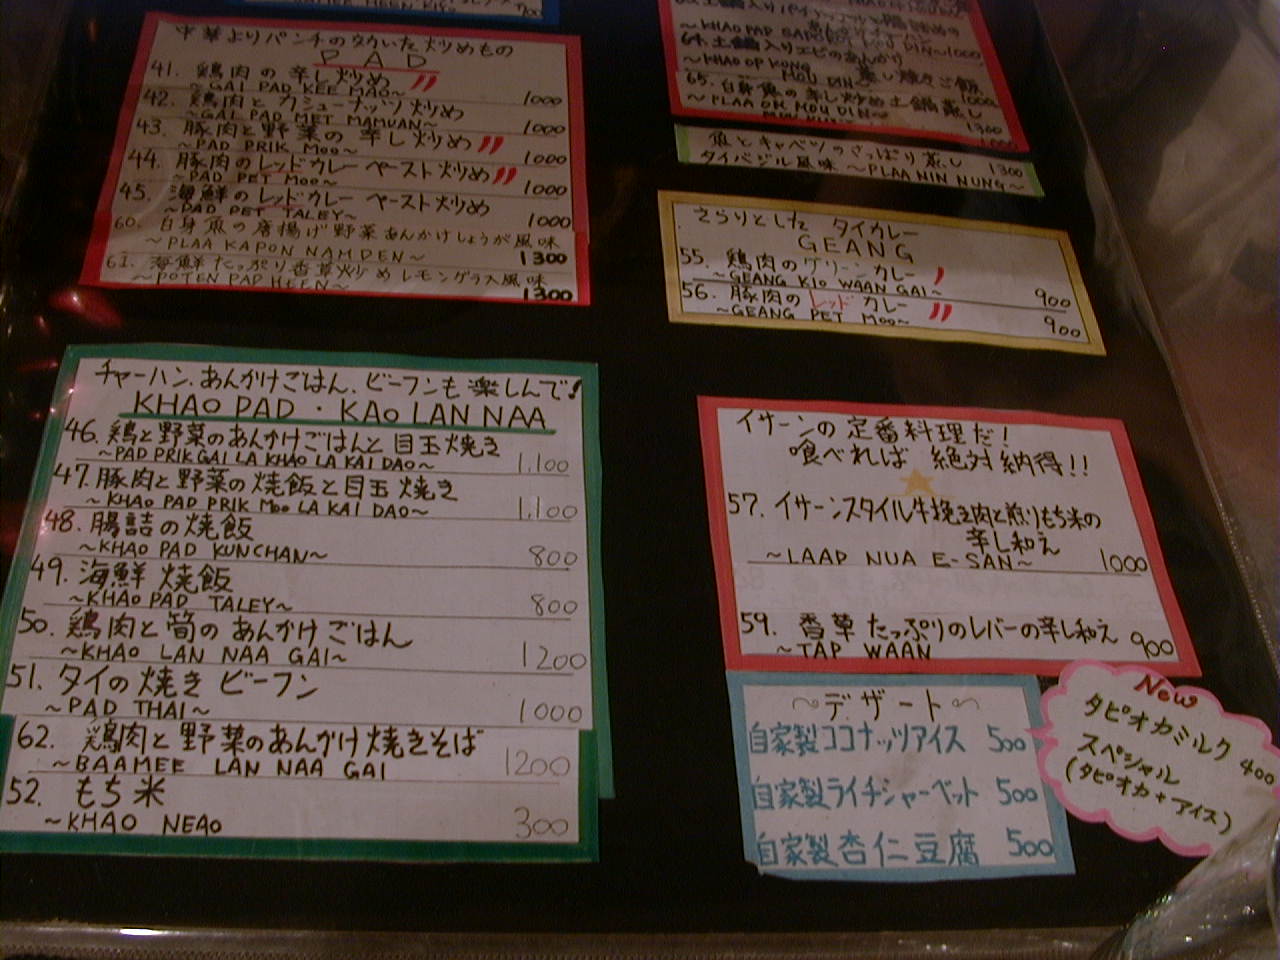 700
中華よりパンチの効いた炒めもの
PAD
41. 鶏肉の辛し炒め
~GAI PAD KEE MAO~ 1000
42. 鶏肉とカシューナッツ炒め
~GAI PAD MET MAMUAN~ 1000
43. 豚肉と野菜の辛し炒め
~PAD PRIK MOO~ 1000
44. 豚肉のレッドカレーペースト炒め
~PAD PET MOO~ 1000
45. 海鮮のレッドカレーペースト炒め
~PAD PET TALEY~ 1000
60. 白身魚の唐揚げ野菜あんかけしょうが風味
~PLAA KAPON NAMDEN~ 1300
61. 海鮮たっぷり香草炒めレモングラス風味
~POTEN PAD HEEN~ 1300
チャーハン、あんかけごはん、ビーフンも楽しんで!
KHAO PAD・KAO LAN NAA
46. 鶏と野菜のあんかけごはんと目玉焼き
~PAD PRIK GAI LA KHAO LA KAI DAO~ 1,100
47. 豚肉と野菜の焼飯と目玉焼き
~KHAO PAD PRIK MOO LA KAI DAO~ 1,100
48. 腸詰の焼飯
~KHAO PAD KUNCHAN~ 800
49. 海鮮焼飯
~KHAO PAD TALEY~ 800
50. 鶏肉と筍のあんかけごはん
~KHAO LAN NAA GAI~ 1200
51. タイの焼きビーフン
~PAD THAI~ 1000
62. 鶏肉と野菜のあんかけ焼きそば
~BAAMEE LAN NAA GAI 1200
52. もち米
~KHAO NEAO 300
64. 土鍋入りエビの
~KHAO OP KONG
65. 白身魚の辛し炒め土鍋蒸し
1300
魚とキャベツのさっぱり蒸し
タイバジル風味 ~PLAA NIN NUNG~ 1300
さらりとした タイカレー
GEANG
55. 鶏肉のグリーンカレー
~GEANG KIO WAAN GAI~ 900
56. 豚肉のレッドカレー
~GEANG PET MOO~ 900
イサーンの定番料理だ!
喰べれば 絶対納得!!
57. イサーンスタイル牛挽き肉と煎りもち米の
辛し和え
~LAAP NUA E-SAN~ 1000
59. 香草たっぷりのレバーの辛し和え
~TAP WAAN 900
~デザート~
自家製ココナッツアイス 500
自家製ライチシャーベット 500
自家製杏仁豆腐 500
New
タピオカミルク 400
スペシャル
(タピオカ+アイス)